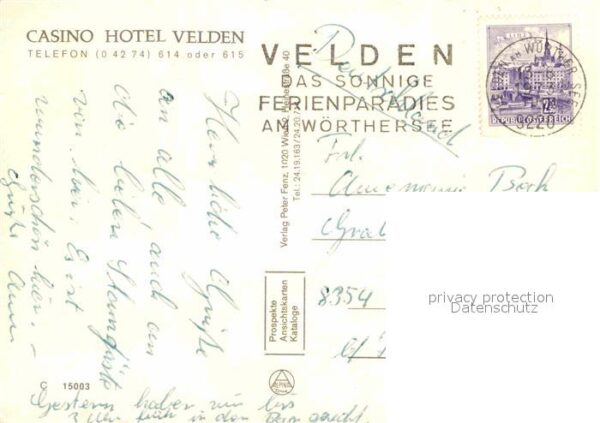 CASINO HOTEL VELDEN
TELEFON (0 42 74) 614 oder 615
VELDEN
DAS SONNIGE
FERIENPARADIES
AM WÖRTHERSEE
VELDEN AM WÖRTHER SEE
9220
REPUBLIK ÖSTERREICH
Deutschland
Herzliche Grüße
an alle, auch an
die lieben Stammgäste
von hier. Es ist
wunderschön hier. –
Grüße
Verlag Peter Fenz, 1020 Wien 2,
Tel.: 24.19.163/24.20
Prospekte
Ansichtskarten
Kataloge
Frl.
Annemarie
8354
privacy protection
Datenschutz
C 15003
ALPINA
Gestern haben wir bis
3 Uhr früh in der Bar